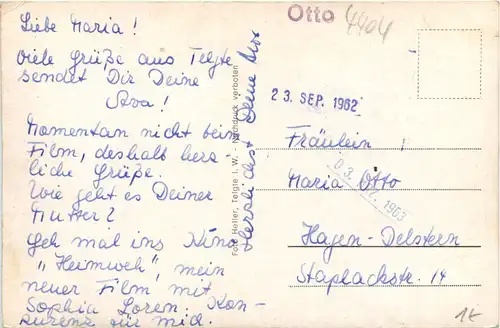 Otto 4404
Liebe Maria!
Viele Grüße aus Telgte
sendet Dir Deine
Ava!
Momentan nicht beim
Film, deshalb herz-
liche Grüße.
Wie geht es Deiner
Mutter?
Geh mal ins Kino
"Heimweh", mein
neuer Film, mit
Sophia Loren. Kon-
kurenz für mich.
Herzlichst Deine
Foto Heller, Telgte i. W. · Nachdruck verboten
23. SEP. 1962
Fräulein
Maria Otto
1963
Hagen-Delstern
Staplackstr. 14